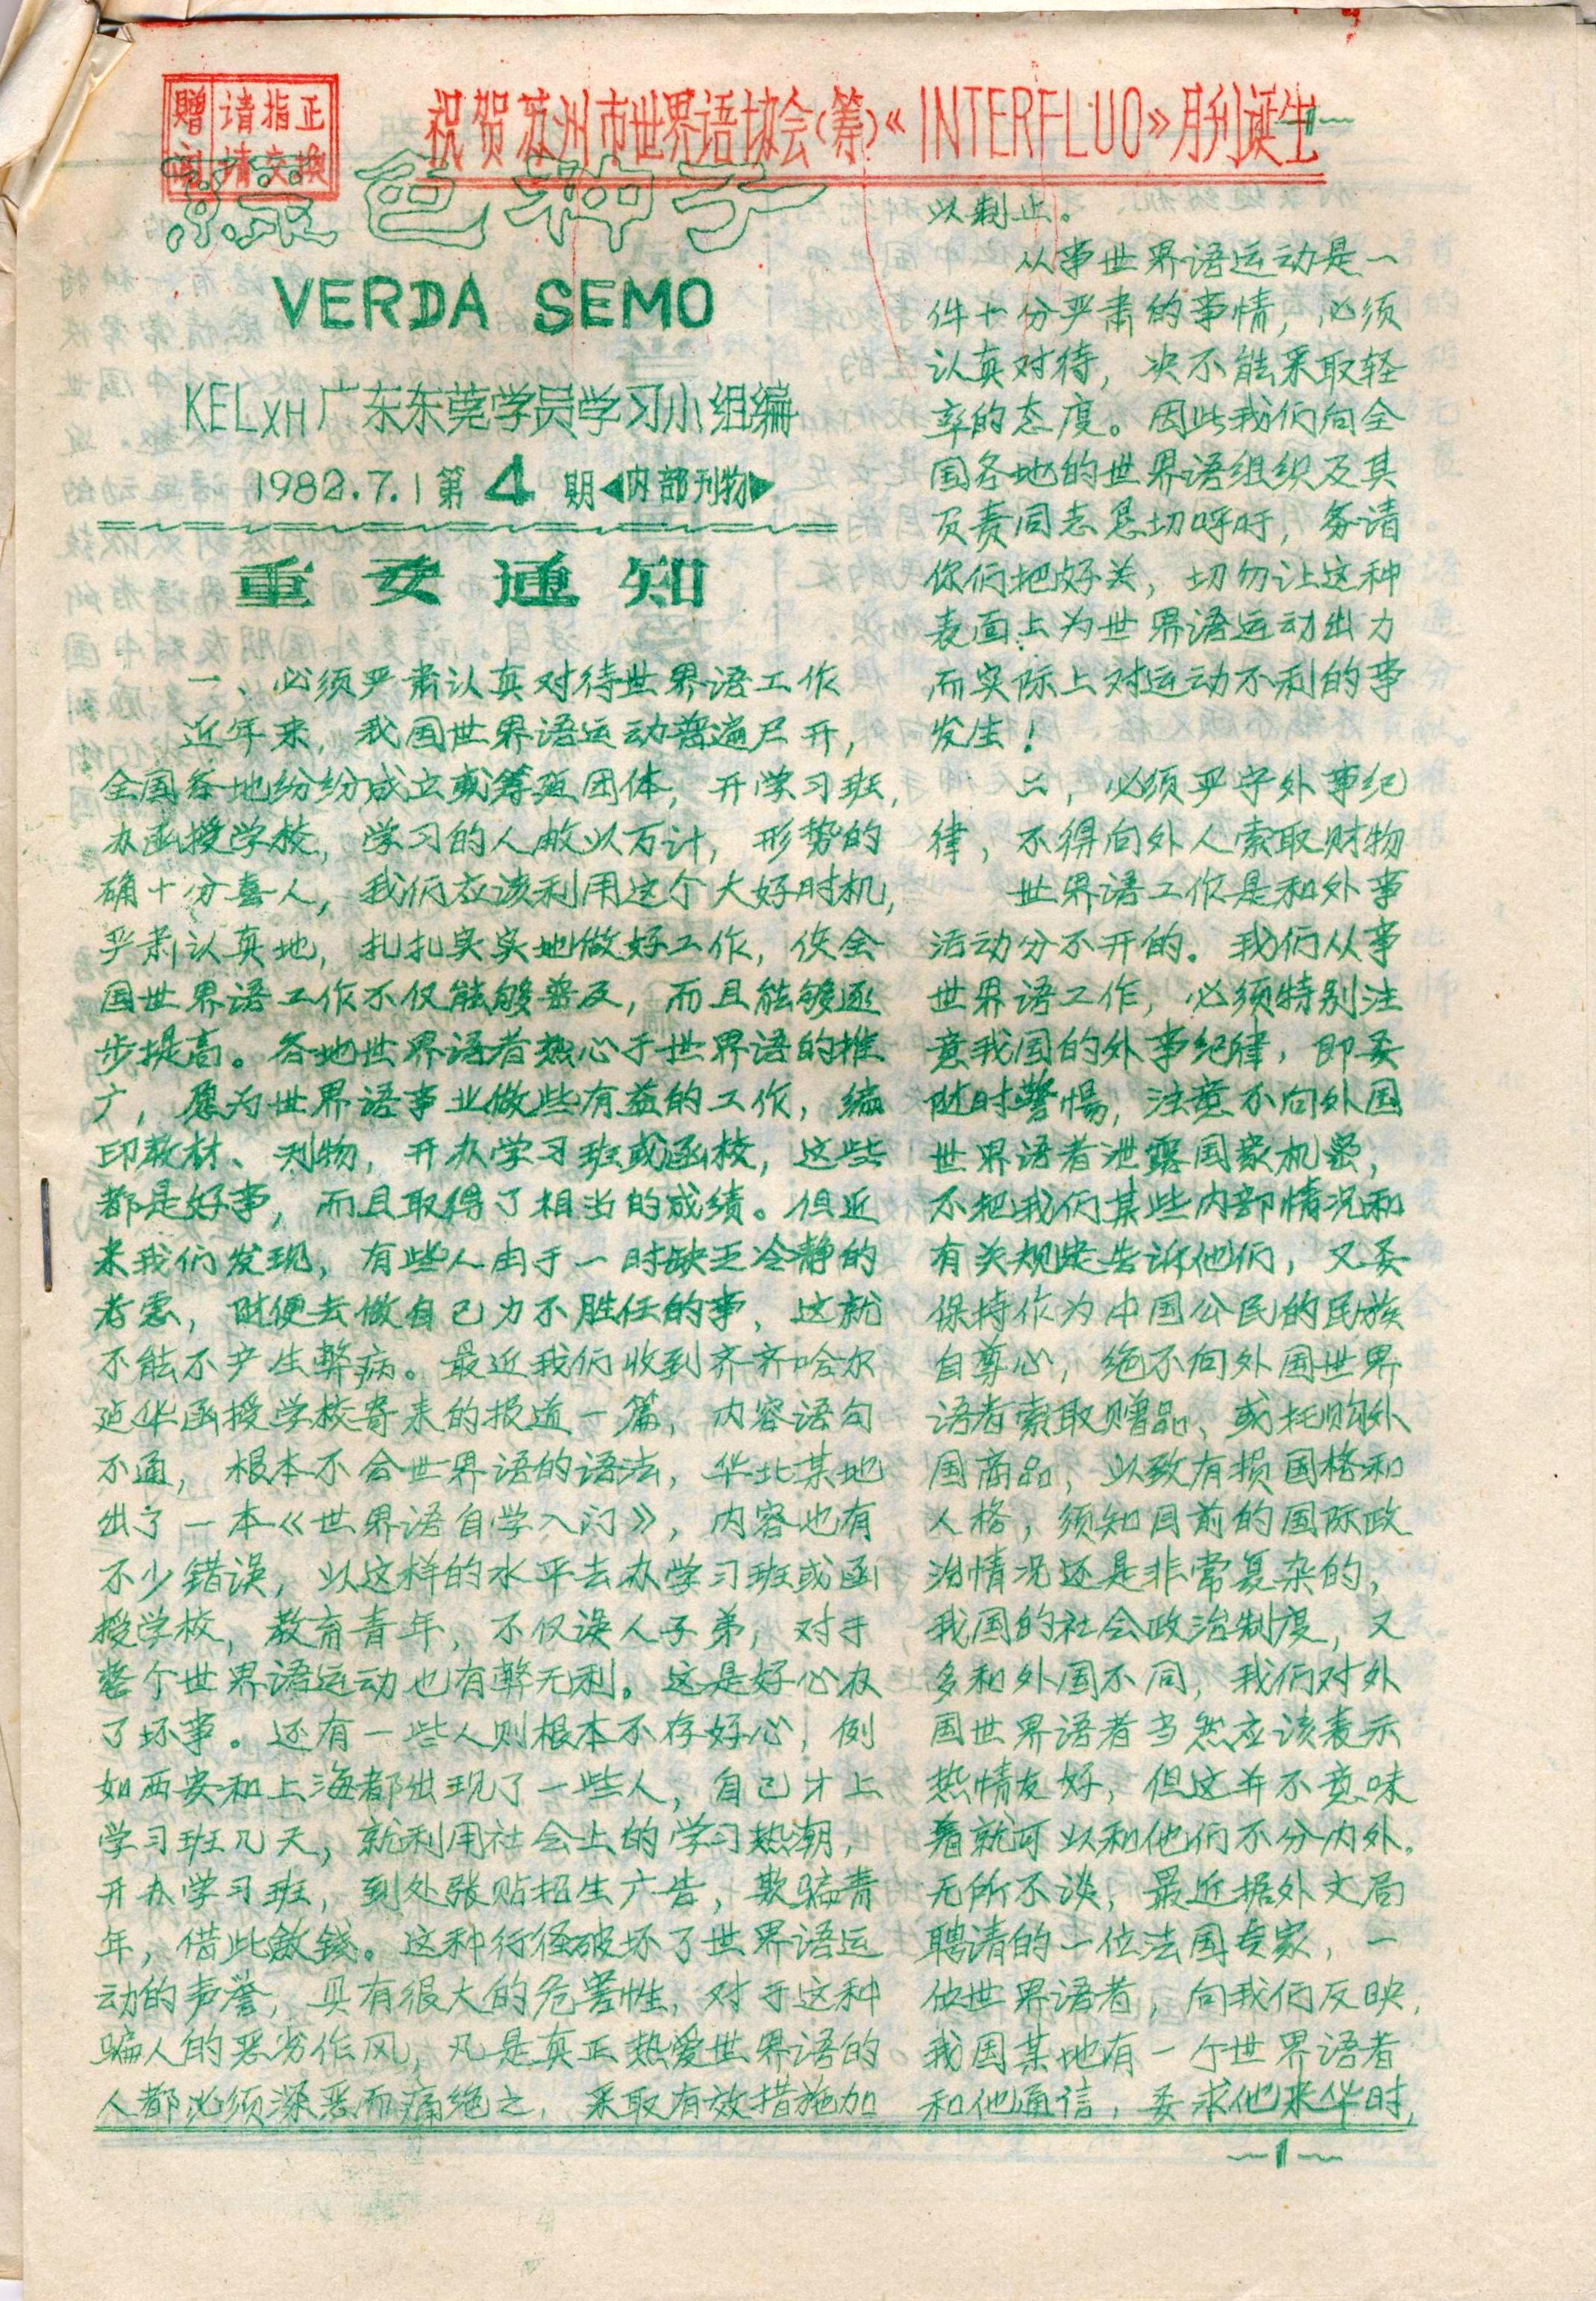 赠阅
请指正
请交换
祝贺苏州市世界语协会(筹)《INTERFLUO》月刊诞生
绿色种子
VERDA SEMO
KELXH广东东莞学员学习小组编
1982.7.1第4期◀内部刊物▶
重要通知
一、必须严肃认真对待世界语工作
近年来,我国世界语运动普遍尸开,
全国各地纷纷成立或筹建团体,开学习班,
办函授学校,学习的人数以万计,形势的
确十分喜人,我们应该利用这个大好时机,
严肃认真地,扎扎实实地做好工作,使全
国世界语工作不仅能够普及,而且能够逐
步提高。各地世界语者热心于世界语的推
广,愿为世界语事业做些有益的工作,编
印教材、刊物,开办学习班或函校,这些
都是好事,而且取得了相当的成绩。但近
来我们发现,有些人由于一时缺乏冷静的
考虑,随便去做自己力不胜任的事,这就
不能不产生弊病。最近我们收到齐齐哈尔
延华函授学校寄来的报道一篇,内容语句
不通,根本不合世界语的语法,华北某地
出了一本《世界语自学入门》,内容也有
不少错误,以这样的水平去办学习班或函
授学校,教育青年,不仅误人子弟,对于
整个世界语运动也有弊无利。这是好心办
了坏事。还有一些人则根本不存好心,例
如西安和上海都出现了一些人,自己才上
学习班几天,就利用社会上的学习热潮,
开办学习班,到处张贴招生广告,欺骗青
年,借此敛钱。这种行径破坏了世界语运
动的声誉,具有很大的危害性,对于这种
骗人的恶劣作风,凡是真正热爱世界语的
人都必须深恶而痛绝之,采取有效措施加
以制止。
从事世界语运动是一
件十分严肃的事情,必须
认真对待,决不能采取轻
率的态度。因此我们向全
国各地的世界语组织及其
负责同志恳切呼吁,务请
你们把好关,切勿让这种
表面上为世界语运动出力
而实际上对运动不利的事
发生!
二,必须严守外事纪
律,不得向外人索取财物
世界语工作是和外事
活动分不开的。我们从事
世界语工作,必须特别注
意我国的外事纪律,即要
随时警惕,注意不向外国
世界语者泄露国家机密,
不把我们某些内部情况和
有关规定告诉他们,又要
保持作为中国公民的民族
自尊心,绝不向外国世界
语者索取赠品、或托购外
国商品,以致有损国格和
人格,须知目前的国际政
治情况还是非常复杂的,
我国的社会政治制度,又
多和外国不同,我们对外
国世界语者当然应该表示
热情友好,但这并不意味
着就可以和他们不分内外,
无所不谈,最近据外文局
聘请的一位法国专家,一
位世界语者,向我们反映,
我国某地有一个世界语者
和他通信,要求他来华时,
1